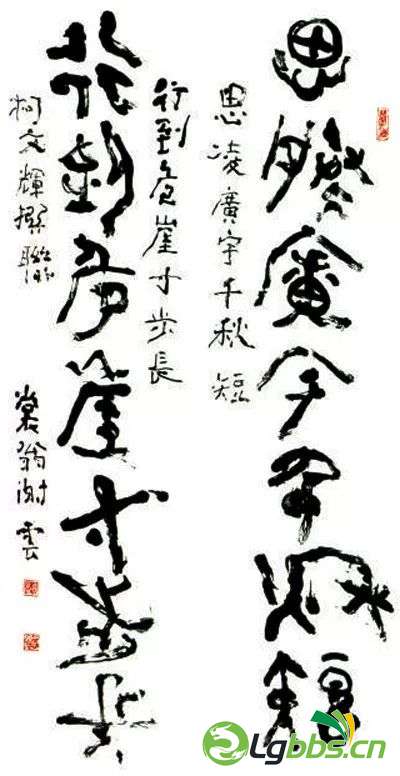 思凌廣宇千秋短
思凌廣宇千秋短
行到危崖寸步長
行到危崖寸步長
柯文輝撰聯
裳翁谢雲
Lgbbs.cn